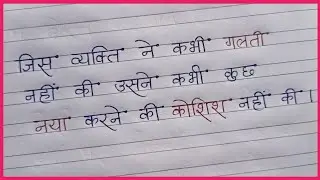 जिस व्यक्ति ने कभी गलती
नहीं की उसने कभी कुछ
नया करने की कोशिश नहीं की ।